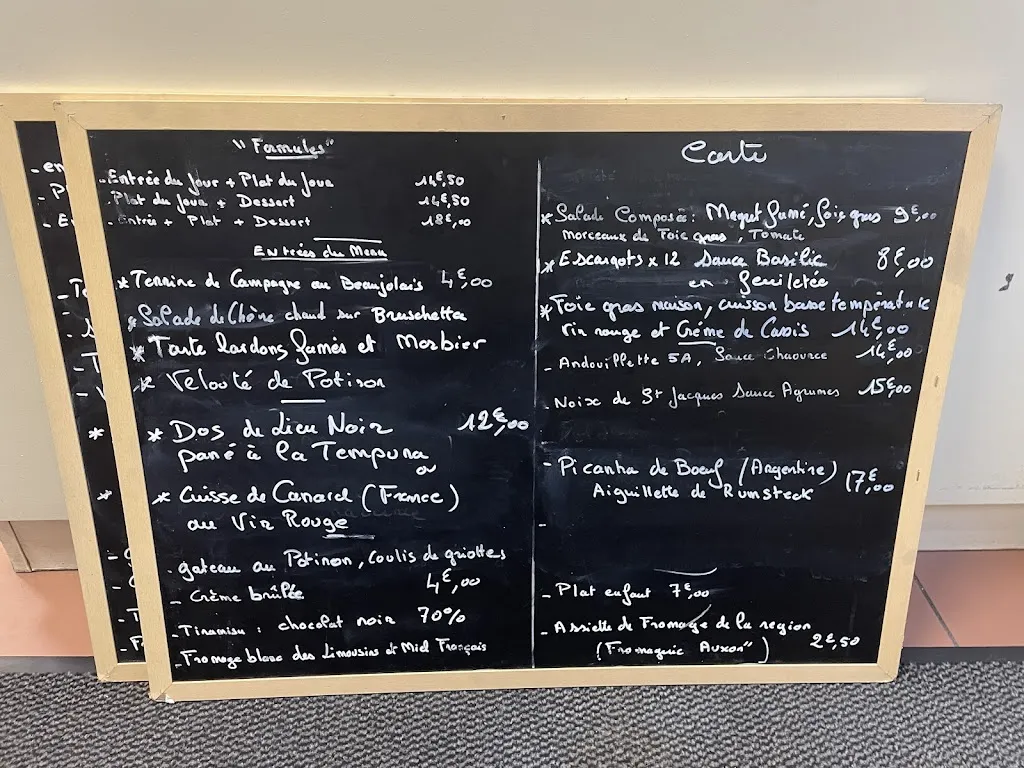 "Formules"
-Entrée du Jour + Plat du Jour 14€,50
-Plat du Jour + Dessert 14€,50
-Entrée + Plat + Dessert 18€,00
Entrées du Menu
* Terrine de Campagne au Beaujolais 4€,00
* Salade de Chèvre chaud sur Bruschetta
* Tarte lardons fumés et Morbier
* Velouté de Potiron
* Dos de Lieu Noir 12€,00
pané à la Tempura
ou
* Cuisse de Canard (France)
au Vin Rouge
- gateau au Potiron, Coulis de griottes
- Crème brûlée 4€,00
- Tiramisu : chocolat noir 70%
- Fromage blanc des Limousins et Miel Français
Carte
* Salade Composée : Magret fumé, fois gras 9€,00
morceaux de Foie gras, Tomate
* Escargots x 12 Sauce Basilic 8€,00
en feuilletée
* Foie gras maison, cuisson basse température
Vin rouge et Crème de Cassis 14€,00
- Andouillette 5A, Sauce Chaource 14€,00
- Noix de St Jacques Sauce Agrumes 15€,00
- Picanha de Boeuf (Argentine) 17€,00
Aiguillette de Rumsteck
-
- Plat enfant 7€,00
- Assiette de Fromage de la region
(Fromagerie Auxon") 2€,50